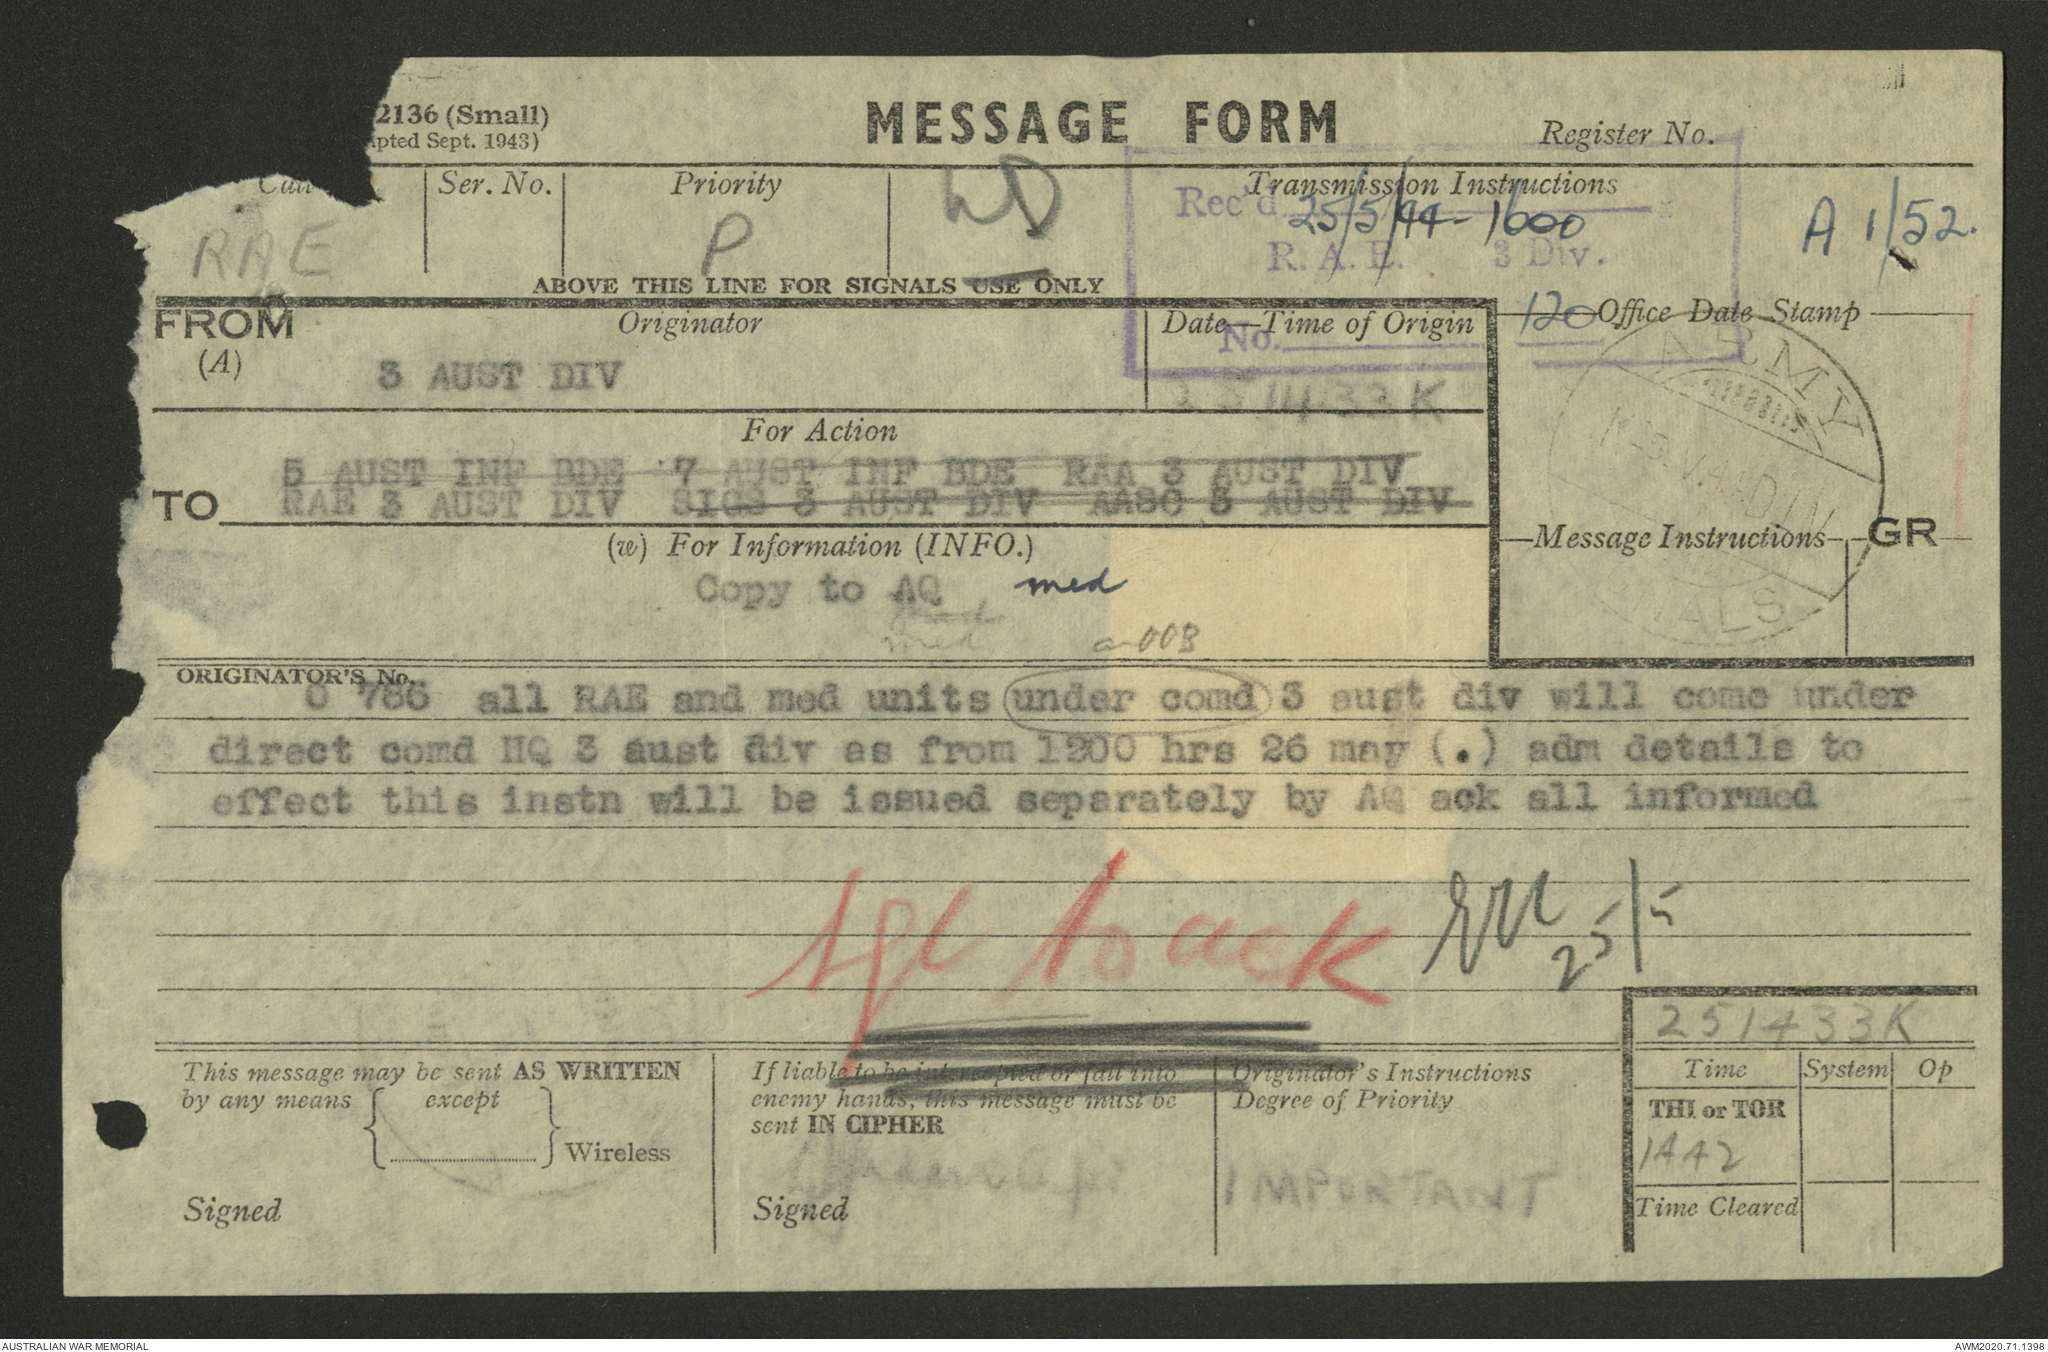 2136 (Small)
MESSAGE FORM
pted Sept. 1943)
Register No.
Call
Ser. No.
Priority
Transmission Instructions
RAE
P
Rec'd 25/5/44 - 1600
A 1/52.
R. A. E. 3 Div.
ABOVE THIS LINE FOR SIGNALS USE ONLY
No. 120
FROM
Originator
Date—Time of Origin
Office Date Stamp
(A)
3 AUST DIV
251433K
ARMY
For Action
5 AUST INF BDE 7 AUST INF BDE RAA 3 AUST DIV
TO
RAE 3 AUST DIV SIGS 3 AUST DIV AASC 3 AUST DIV
Message Instructions
GR
(w) For Information (INFO.)
Copy to AQ med
med
ORIGINATOR'S No.
O 786 all RAE and med units under comd 3 aust div will come under
direct comd HQ 3 aust div as from 1200 hrs 26 may (.) adm details to
effect this instn will be issued separately by AQ ack all informed
to ack
25/5
251433K
This message may be sent AS WRITTEN
by any means except
Wireless
Signed
If liable to be intercepted or fall into
enemy hands, this message must be
sent IN CIPHER
Signed
Originator's Instructions
Degree of Priority
IMPORTANT
Time
System
Op
THI or TOR
1442
Time Cleared
AUSTRALIAN WAR MEMORIAL
AWM2020.71.1398